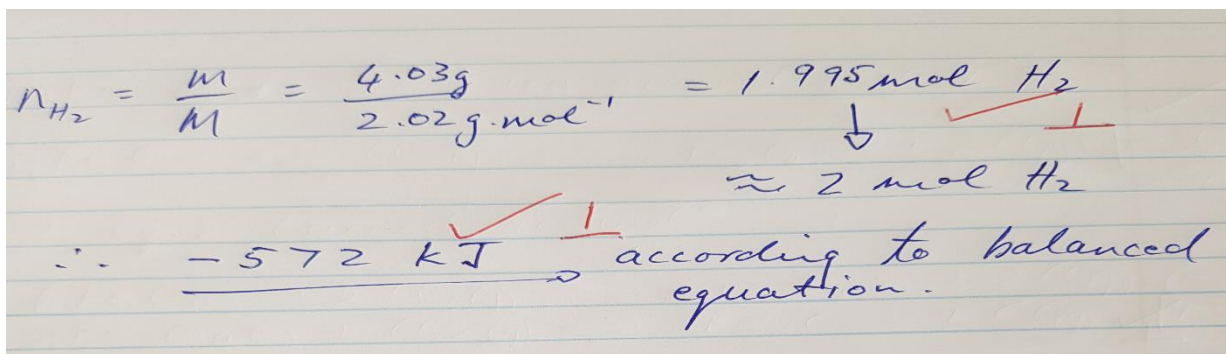 n_H₂ = m/M = 4.03g / 2.02g.mol⁻¹ = 1.995 mol H₂
✓ 1
↓
≈ 2 mol H₂
✓ 1
∴ -572 kJ → according to balanced
equation.